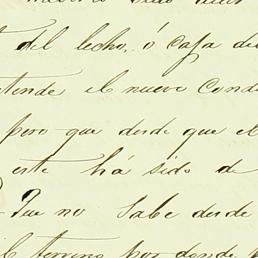 del lecho, ó caja de
tiende el nuevo Cond
pero que desde que el
este há sido de
Que no Sabe desde
terreno por donde